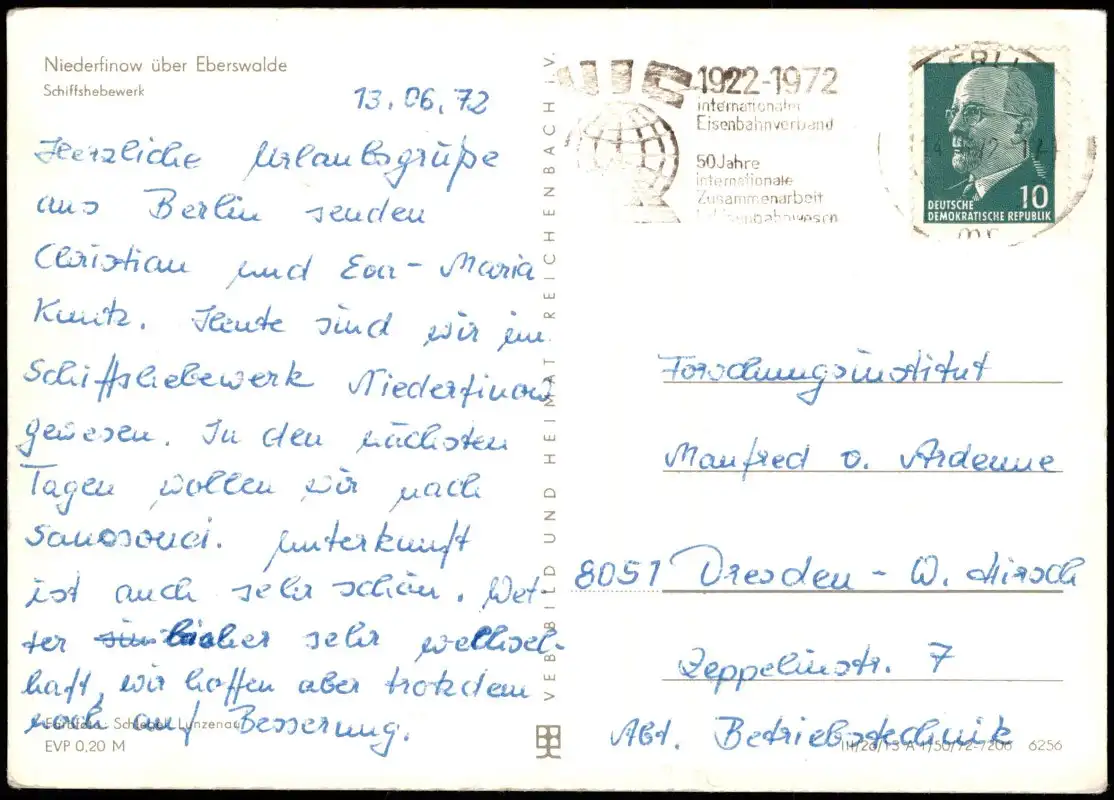 Niederfinow über Eberswalde
Schiffshebewerk
13.06.72
Herzliche Urlaubsgrüße
aus Berlin senden
Christian und Eva-Maria
Kuntz. Heute sind wir im
Schiffshebewerk Niederfinow
gewesen. In den nächsten
Tagen wollen wir nach
Sanssouci. Unterkunft
ist auch sehr schön. Wet-
ter bisher sehr wechsel-
haft, wir hoffen aber trotzdem
noch auf Besserung.
Schlegel, Lunzenau
EVP 0,20 M
VEB BILD UND HEIMAT REICHENBACH I. V.
UIC 1922-1972
internationaler
Eisenbahnverband
50 Jahre
internationale
Zusammenarbeit
Eisenbahnwesen
10
DEUTSCHE
DEMOKRATISCHE REPUBLIK
Forschungsinstitut
Manfred v. Ardenne
8051 Dresden - W. Hirsch
Zeppelinstr. 7
Abt. Betriebstechnik
III/26/13 A 1/50/72-7206 6256